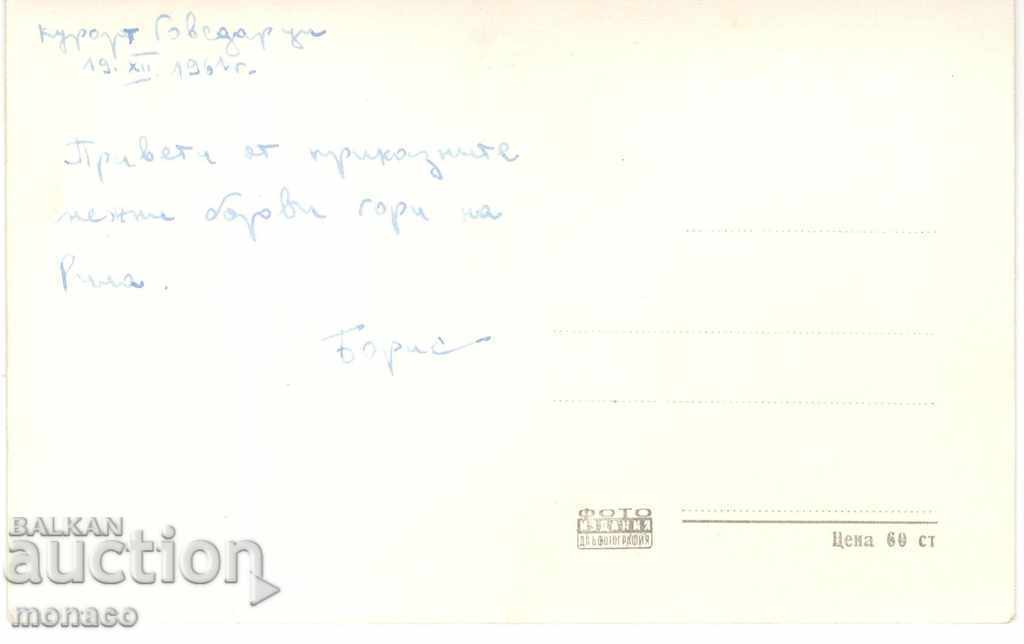 курорт Говедарци
19. XII. 1961 г.
Привети от приказните
нежни борови гори на
Рила.
Борис
ФОТО
ИЗДАНИЯ
ДП БЪЛГ. ФОТОГРАФИЯ
Цена 60 ст
BALKAN
auction
monaco